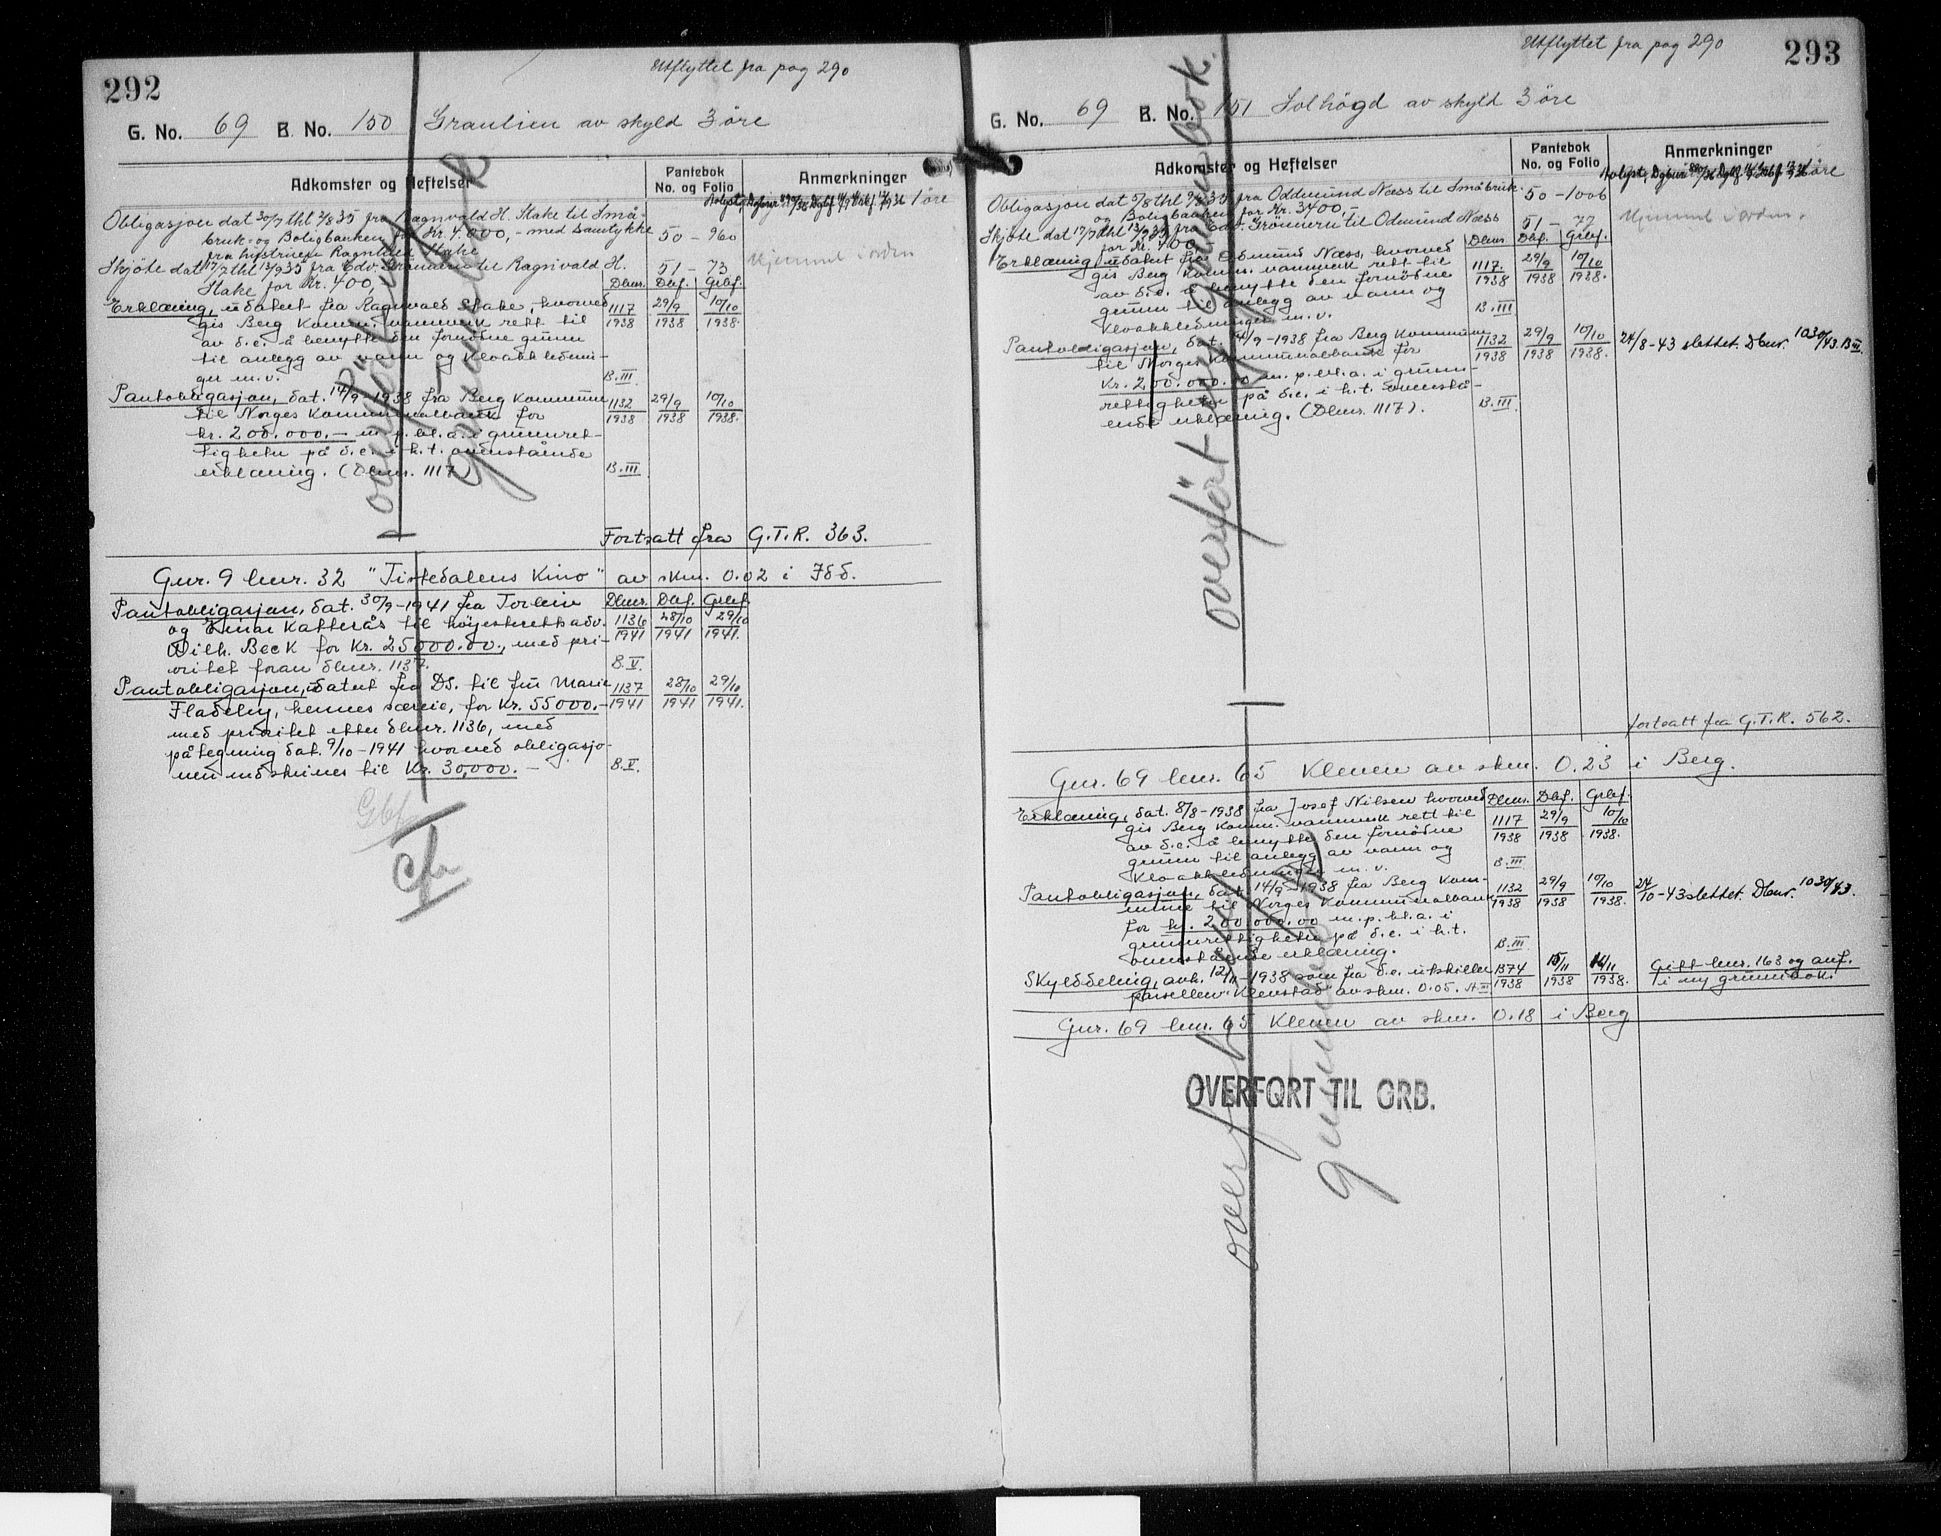 292
Utflyttet fra pag 290
G. No. 69 B. No. 150 Granlien av skyld 3 øre
Adkomster og Heftelser
Pantebok No. og Folio
Anmerkninger
Obligasjon dat 30/7 thl 2/8 35 fra Ragnvald H. Stake til Små-
bruk- og Boligbanken for Kr. 4.000,- med samtykke 50 - 960
fra hustruen Ragnhild Stake
Hjemmel i orden
Skjøte dat 17/7 thl 13/9 35 fra Edv. Grönnern til Ragnvald H. 51 - 73
Stake for Kr. 400, Dbnr. Dbf. Grbf.
Erklæring, udatert fra Ragnvald Stake, hvorved 1117/1938 29/9 1938 10/10 1938.
gis Berg Komm. vannverk rett til
av d.e. å benytte den fornødne grunn
til anlegg av vann og Kloakkledninn-
ger m.v. B.III
Pantobligasjon, dat. 14/9-1938 fra Berg Kommune 1132/1938 29/9 1938 10/10 1938.
til Norges Kommunalbank for
kr. 200.000.- m.p.bl.a. i grunnret-
tigheter på d.e. i h.t. ovenstående
erklæring. (Dbnr. 1117) B.III
overfört ny grunnbok
Fortsatt fra G.T.R. 363.
Gnr. 9 bnr. 32 "Tistedalens Kino" av skm. 0.02 i Idd.
Pantobligasjon, dat. 30/9-1941 fra Torleiv Dbnr. Dbf. Grbf.
og Einar Katterås til höyesterettsadv. 1136/1941 28/10 1941 29/10 1941.
Wilh. Beck for Kr. 25000.00, med pri-
oritet foran dbnr. 1137. B.V.
Pantobligasjon, udatert fra DS. til fru Marie 1137/1941 28/10 1941 29/10 1941.
Fladeby, hennes særeie, for Kr. 55000.-
med prioritet etter dbnr. 1136, med
påtegning dat. 9/10-1941 hvorved obligasjo-
nen nedskrives til Kr. 30,000.- B.V.
293
Utflyttet fra pag 290
G. No. 69 B. No. 151 Solhögd av skyld 3 øre
Adkomster og Heftelser
Pantebok No. og Folio
Anmerkninger
Obligasjon dat 5/8 thl 9/8 35 fra Oddmund Næss til Småbruk- 50 - 1006
og Boligbanken for Kr. 3400,-
Hjemmel i orden.
Skjøte dat 17/7 thl 13/9 35 fra Edv. Grönnern til Odmund Næss 51 - 72
for Kr. 400, Dbnr. Dbf. Grbf.
Erklæring udatert fra Odmund Næss, hvorved 1117/1938 29/9 1938 10/10 1938.
gis Berg Komm. vannverk rett til
av d.e. å benytte den fornødne
grunn til anlegg av vann og
Kloakkledninger m.v. B.III
Pantobligasjon, dat. 14/9-1938 fra Berg Kommune 1132/1938 29/9 1938 10/10 1938. 24/8-43 slettet. Dbnr. 1030/43. B III
til Norges Kommunalbank for
Kr. 200.000.00 m.p.bl.a. i grunn-
rettigheter på d.e. i h.t. ovenstå-
ende erklæring. (Dbnr. 1117). B.III
overført ny grunnbok.
fortsatt fra G.T.R. 562.
Gnr. 69 bnr. 65 Kleven av skm. 0.23 i Berg.
Erklæring, dat. 8/8-1938 fra Josef Nilsen hvorved Dbnr. Dbf. Grbf.
gis Berg Komm. vannverk rett til 1117/1938 29/9 1938 10/10 1938.
av d.e. å benytte den fornødne
grunn til anlegg av vann og
Kloakkledninger m.v. B.III
Pantobligasjon, dat. 14/9-1938 fra Berg Kom- 1132/1938 29/9 1938 10/10 1938. 24/10-43 slettet. Dbnr. 1030/43.
mune til Norges Kommunalbank
for kr. 200.000.00 m.p.bl.a. i
grunnrettigheter på d.e. i h.t.
ovenstående erklæring. B.III
Skylddeling, avh. 12/11-1938 som fra d.e. utskiller 1374/1938 15/11 1938 16/11 1938. Gitt bnr. 163 og anf.
parsellen "Klevstad" av skm. 0.05. A III i ny grunnbok.
Gnr. 69 bnr. 65 Kleven av skm. 0.18 i Berg
OVERFØRT TIL GRB.
overført ny grunnbok